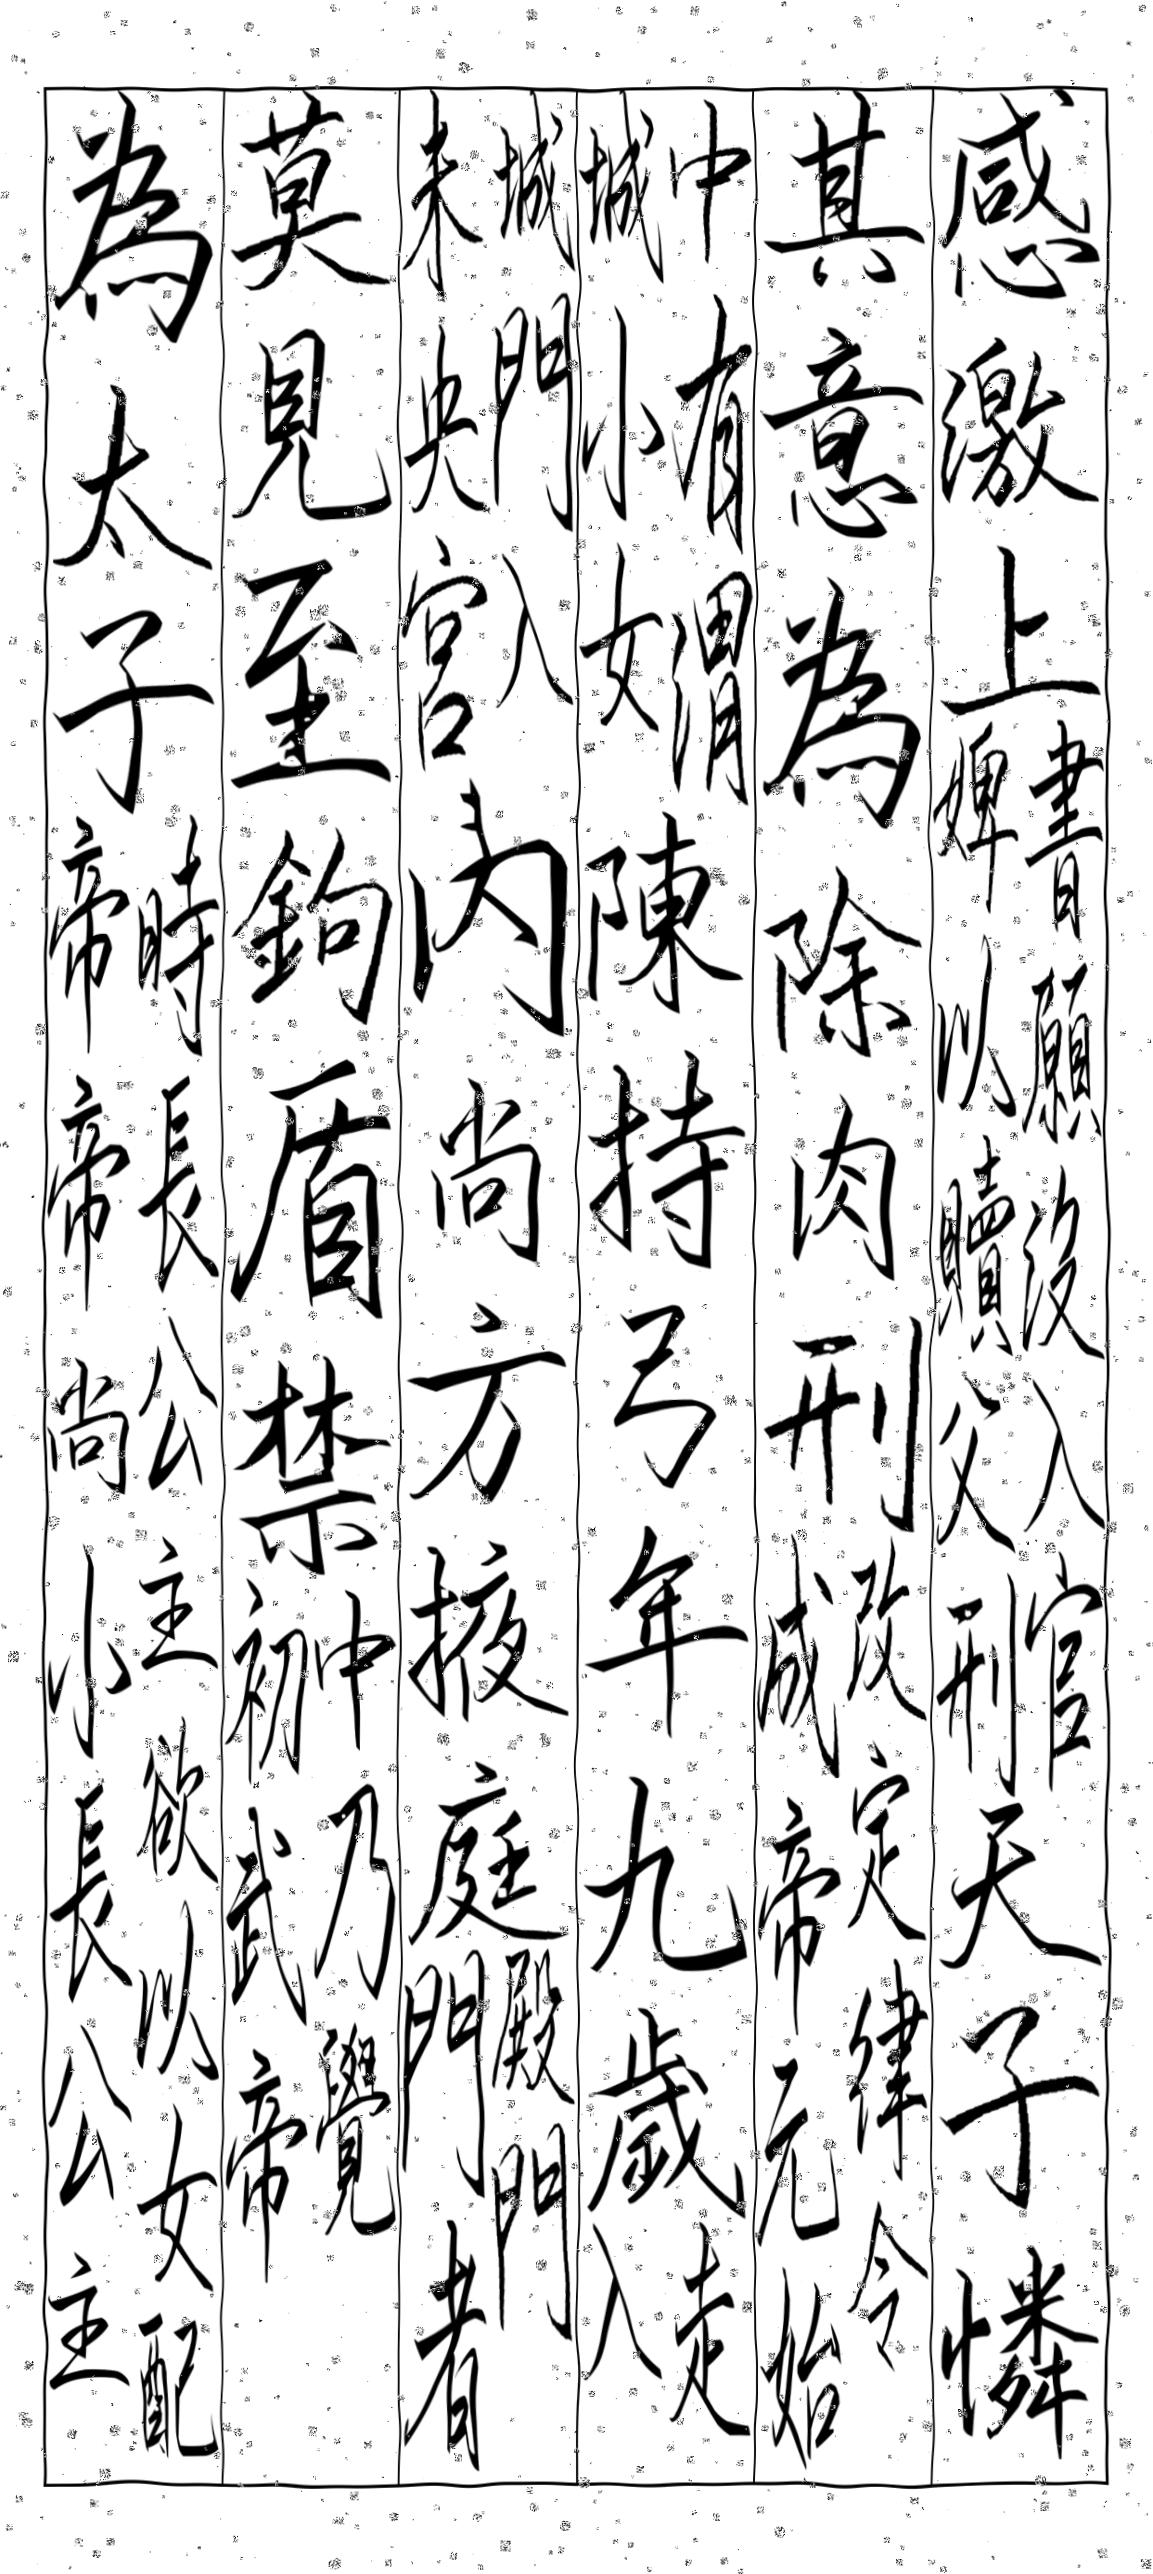 感激上書願没入官婢以贖父刑天子憐
其意為除肉刑改定律令成帝元始
中有渭城小女陳持弓年九歲走入
城門入未央宮内尚方掖庭殿門門者
莫見至鉤盾禁中乃覺初武帝
為太子時長公主欲以女配帝帝尚小長公主